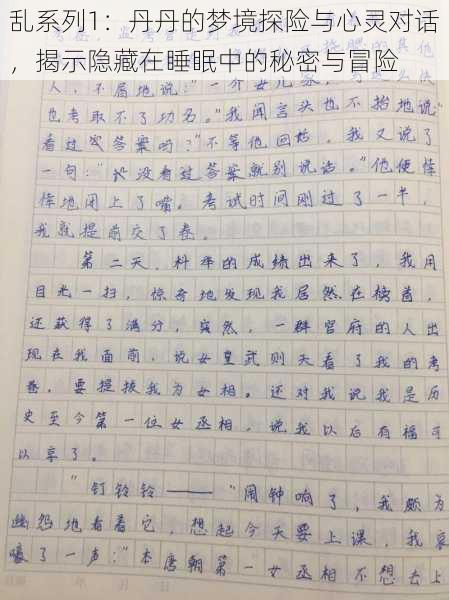 乱系列1：丹丹的梦境探险与心灵对话
，揭示隐藏在睡眠中的秘密与冒险
人，不屑地说：“一介女儿家，
也考取不了功名。”我闻言头也不抬地说“
看过答案吗？”不等他回话，我又说了
一句：“没看过答案就别说话。”他便悻
悻地闭上了嘴。考试时间刚过了一半，
我就提前交了卷。
第二天，科举的成绩出来了，我用
目光一扫，惊奇地发现我居然在榜首，
还获得了满分，突然，一群官府的人出
现在我面前，说女皇武则天看了我的考
卷，要提拔我为女相。还对我说我是历
史至今第一位女丞相，说我以后有福可
以享了。
“钉铃铃——”闹钟响了，我颇为
幽怨地看着它，想起今天要上课，我哀
嚎了一声：“本唐朝第一女丞相不想去上